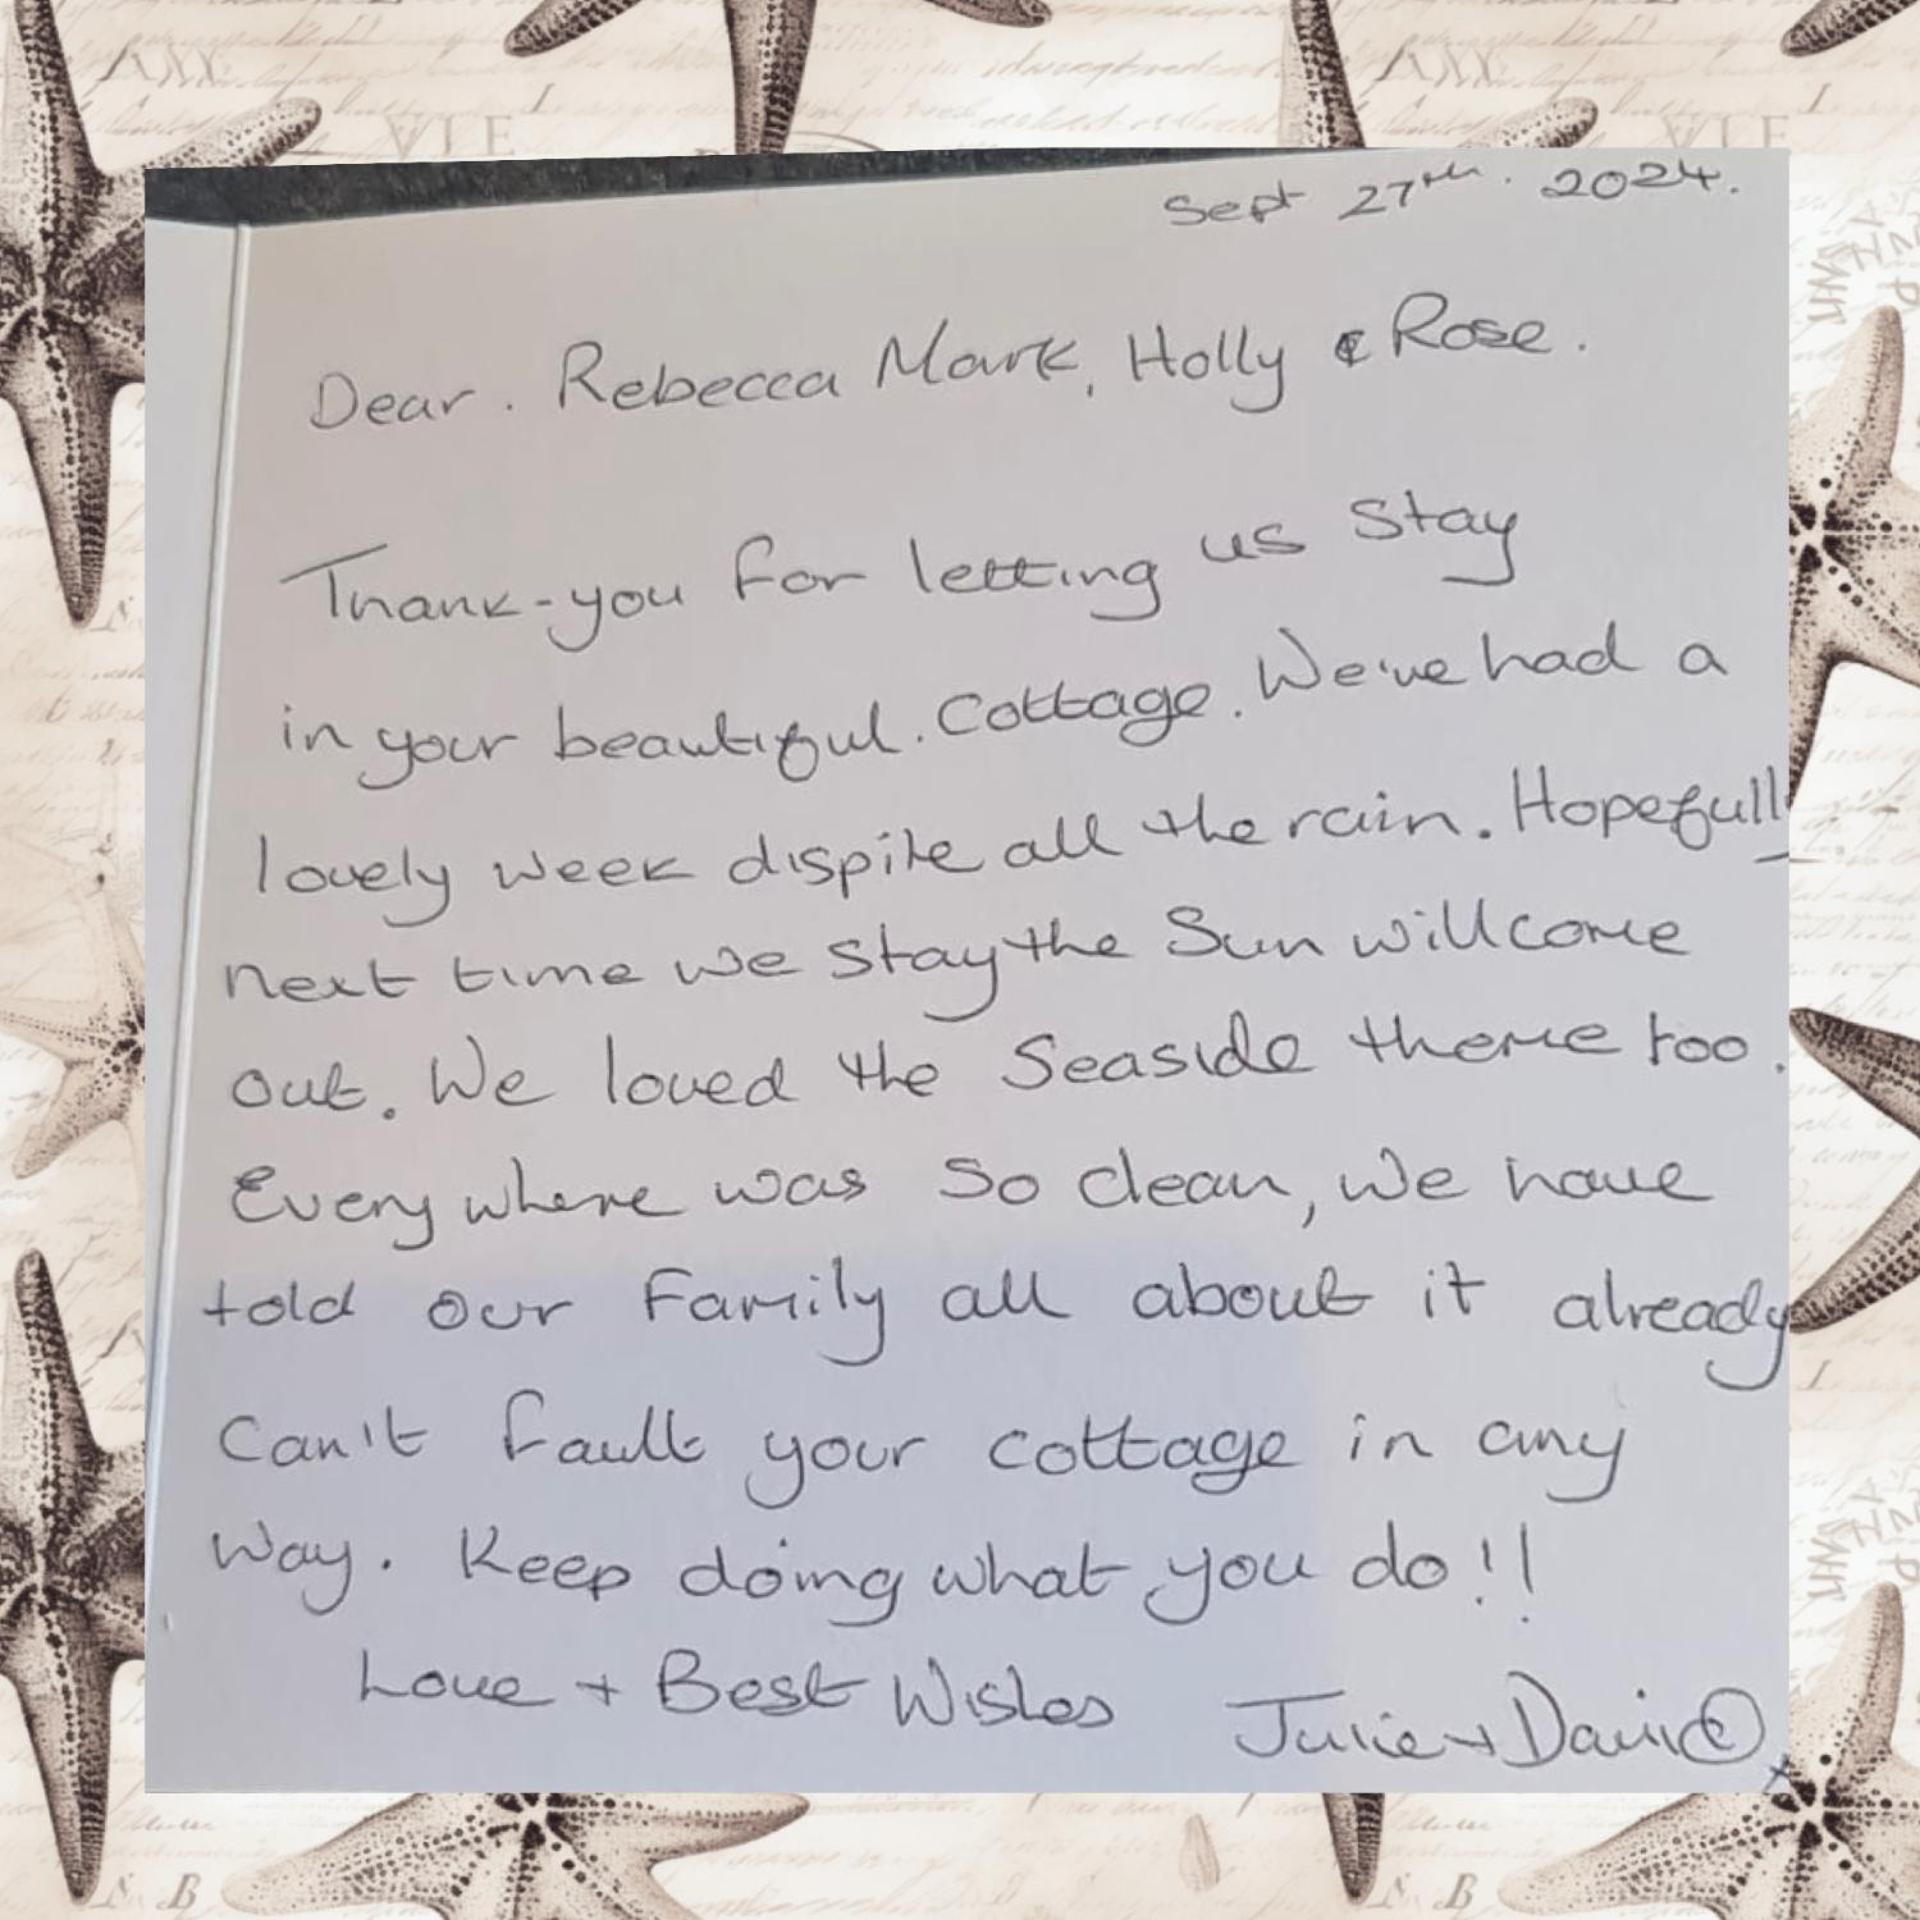 Sept 27th. 2024.
Dear. Rebecca Mark, Holly & Rose.
Thank-you for letting us stay
in your beautiful. Cottage. We've had a
lovely week dispite all the rain. Hopefully
next time we stay the Sun will come
out. We loved the Seaside theme too.
Everywhere was so clean, we have
told our Family all about it already
Can't fault your cottage in any
way. Keep doing what you do!!
Love + Best Wishes Julie + David x